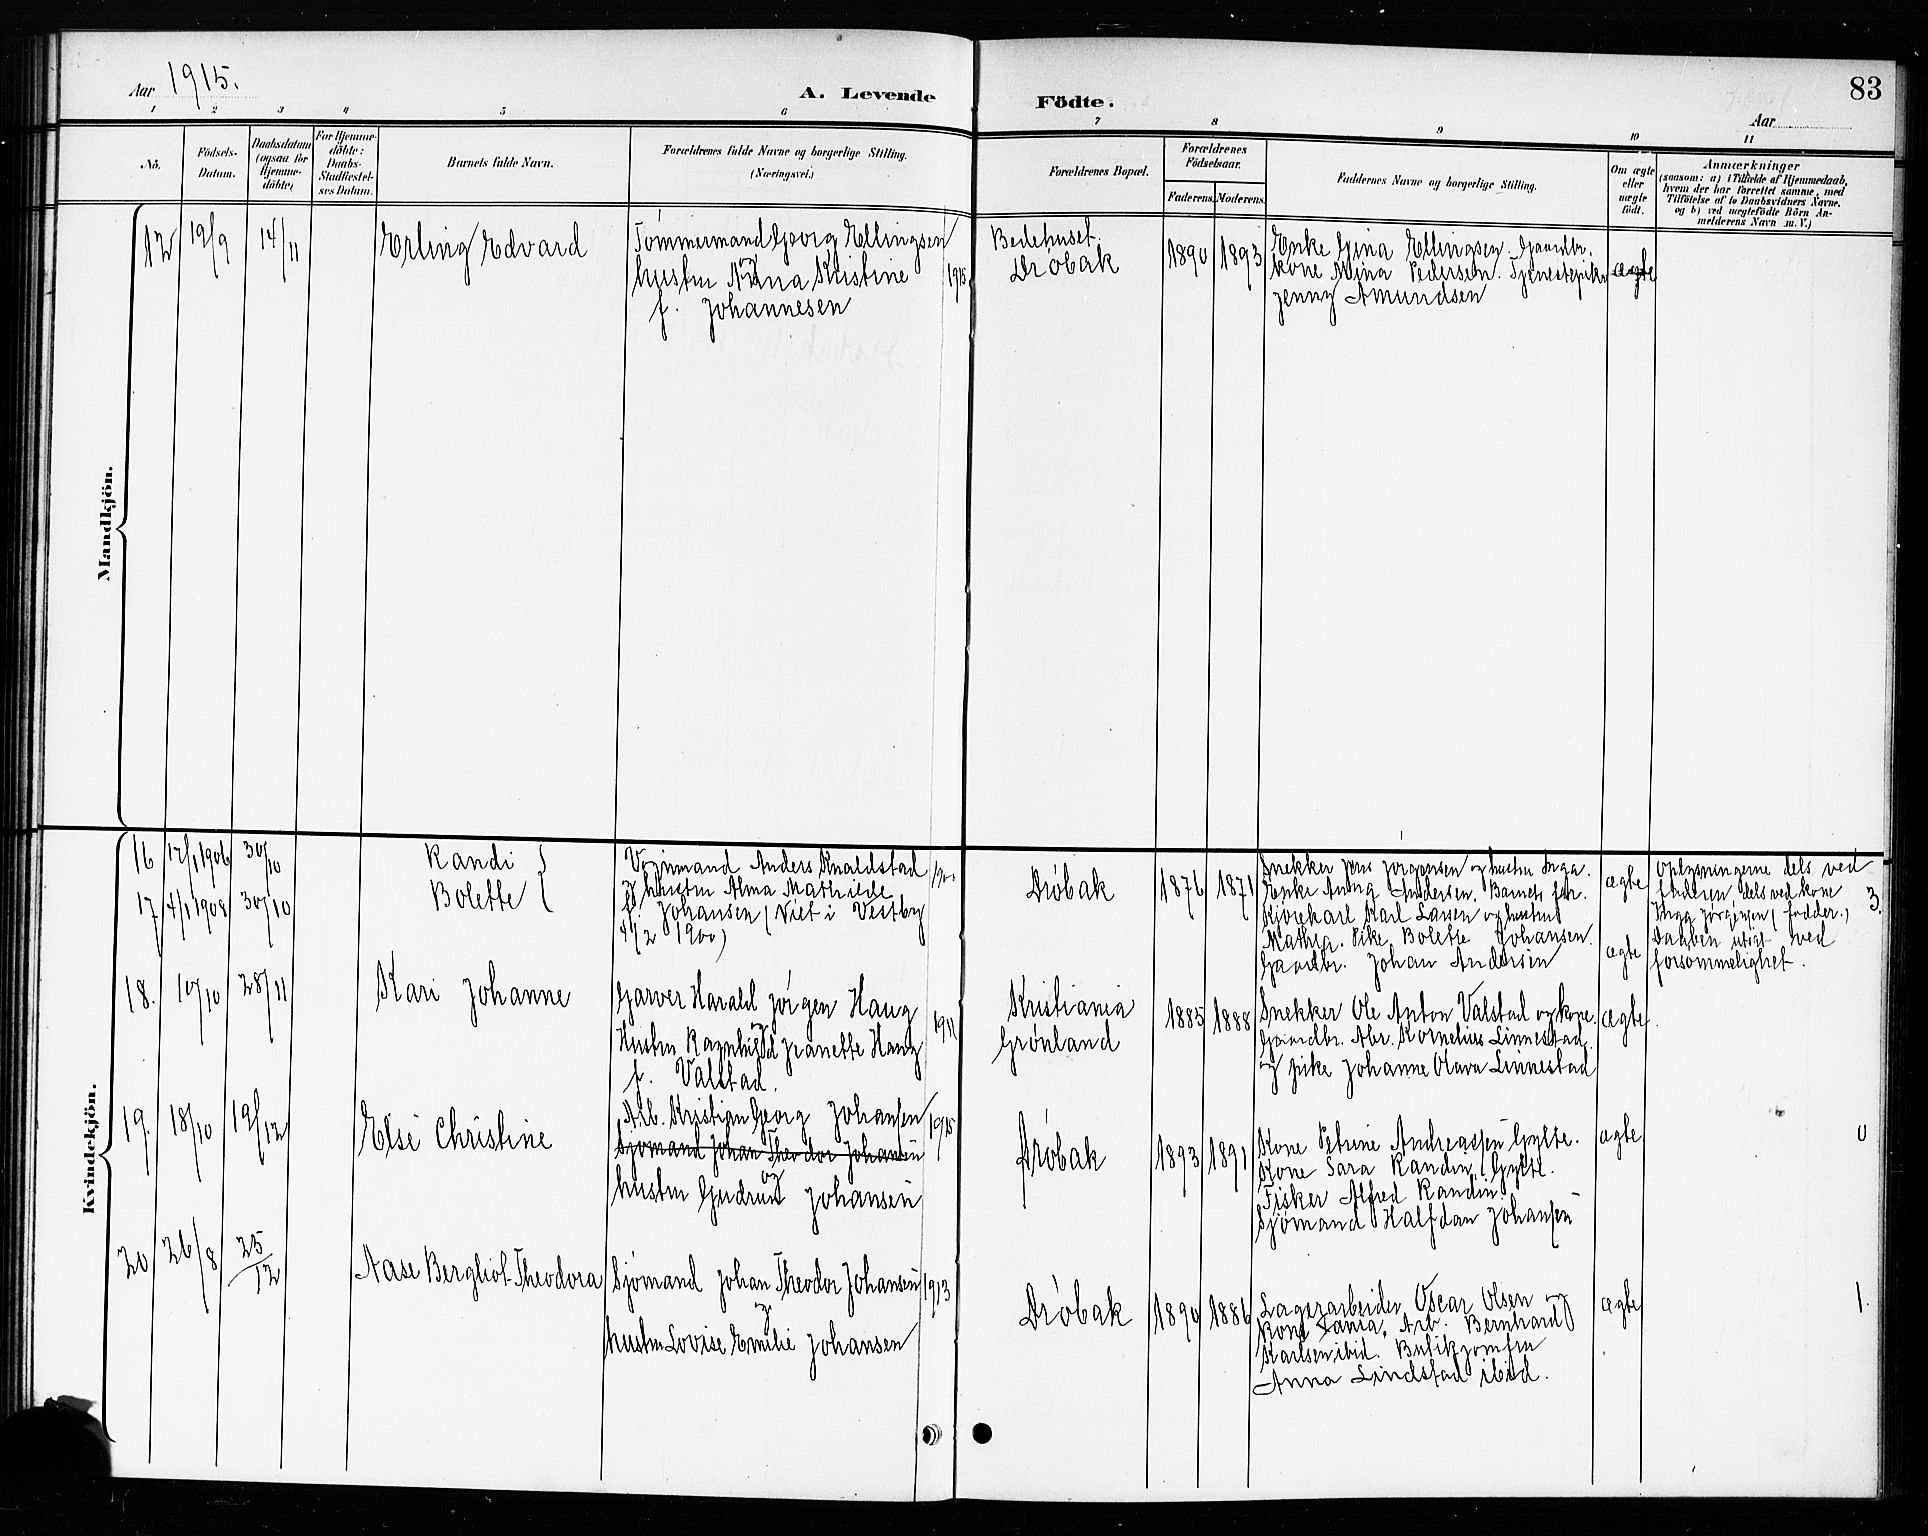 Aar 1915.
A. Levende Födte.
83
Aar
1 2 3 4 5 6 7 8 9 10 11
No.
Födsels-
Datum.
Daabsdatum
(ogsaa for
Hjemme-
døbte)
For Hjemme-
døbte:
Daabs-
Stadfæstel-
ses Datum.
Barnets fulde Navn.
Forældrenes fulde Navne og borgerlige Stilling.
(Næringsvei.)
Forældrenes Bopæl.
Forældrenes
Födselsaar.
Faderens. Moderens.
Faddernes Navne og borgerlige Stilling.
Om ægte
eller
uægte
födt.
Anmærkninger
(saasom: a) i Tilfælde af Hjemmedaab,
hvem der har forrettet samme, med
Tilføielse af to Daabsvidners Navne.
og b) ved uægtefödte Börn An-
melderens Navn m. V.)
Mandkjön.
12 19/9 14/11 Erling Edvard
Tømmermand Georg Ellingsen
og
hustru Anna Kristine
f. Johannesen
1915
Bedehuset,
Drøbak
1890 1893
Enke Gina Ellingsen. Gaardbr.
kone Mina Pedersen. Tjenestepike
Jenny Amundsen
ægte
Kvindekjön.
16 17/1 1906 30/10 Randi
17 4/1 1908 30/10 Bolette
Vognmand Anders Knaldstad
og hustru Alma Mathilde
f. Johansen (Viet i Vestby
4/2 1900)
Drøbak
1876 1871
Snekker Jens Jørgensen og hustru Inga.
Enke Anna Andersen. Barnets far.
Kjørekarl Karl Larsen og hustru
Mathea. Pike Bolette Johansen.
Gaardbr. Johan Andersen
ægte
ægte
Oplysningerne dels ved
faderen, dels ved kone
Inga Jørgensen (fadder.)
Daaben utsat ved
forsømmelighet.
3.
18. 10/10 28/11 Kari Johanne
Garver Harald Jørgen Haug
og
Hustru Ragnhild Jeanette Haug
f. Valstad.
1911
Kristiania
Grønland
1885 1888
Snekker Ole Anton Valstad og kone.
Gaardbr. Abr. Kornelius Linnestad.
og pike Johanne Olava Linnestad
ægte
19. 18/10 19/12 Else Christine
Arb. Kristian Georg Johansen
Sjømand Johan Theodor Johansen
og
hustru Gudrun Johansen
1915
Drøbak
1893 1891
Kone Petrine Andreassen Gylte.
Kone Sara Randin, Gylte.
Fisker Alfred Randin.
Sjømand Halfdan Johansen
ægte
0
20 26/8 25/12 Aase Bergliot Theodora
Sjømand Johan Theodor Johansen
og
hustru Lovise Emilie Johansen
1913
Drøbak
1890 1886
Lagerarbeider Oscar Olsen og
kone Arb. Bernhard
Karlsen, ibid. Butikjomfru
Anna Lindstad ibid.
ægte
1.